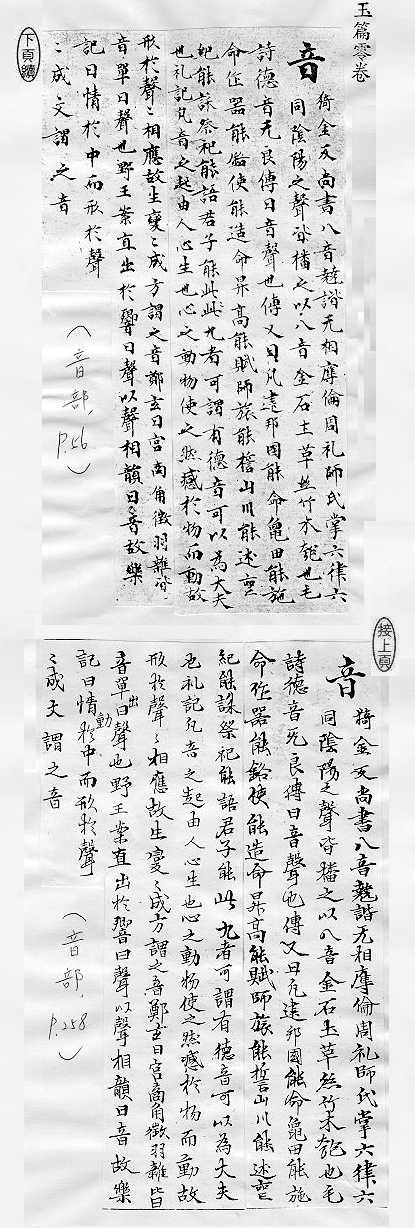 玉篇零卷
音
猗金反尚書八音尅諧无相奪倫周礼師氏掌六律六
同陰陽之聲皆播之以八音金石土草絲竹木匏也毛
詩德音无良傳曰音聲也傳又曰凡建邦國能命龜田能施
命作器能銘使能造命昇高能賦師旅能誓山川能述
紀能誄祭祀能語君子能此此九者可謂有德音可以為大夫
也礼記凡音之起由人心生也心之動物使之然感於物而動故
形於聲〻相應故生變〻成方謂之音鄭玄曰宮商角徵羽雜皆
音單曰聲也野王案直出於響曰聲以聲相韻曰音故樂
記曰情於中而形於聲
〻成文謂之音
(音部, P.56)
下頁續
接上頁
音
猗金反尚書八音尅諧无相奪倫周礼師氏掌六律六
同陰陽之聲皆播之以八音金石土草絲竹木匏也毛
詩德音无良傳曰音聲也傳又曰凡建邦國能命龜田能施
命作器能銘使能造命昇高能賦師旅能誓山川能述
紀能誄祭祀能語君子能此九者可謂有德音可以為大夫
也礼記凡音之起由人心生也心之動物使之然感於物而動故
形於聲〻相應故生變〻成方謂之音鄭玄曰宮商角徵羽雜皆
音單出曰聲也野王案直出於響曰聲以聲相韻曰音故樂
記曰情動於中而形於聲
〻成文謂之音
(音部, P.258)